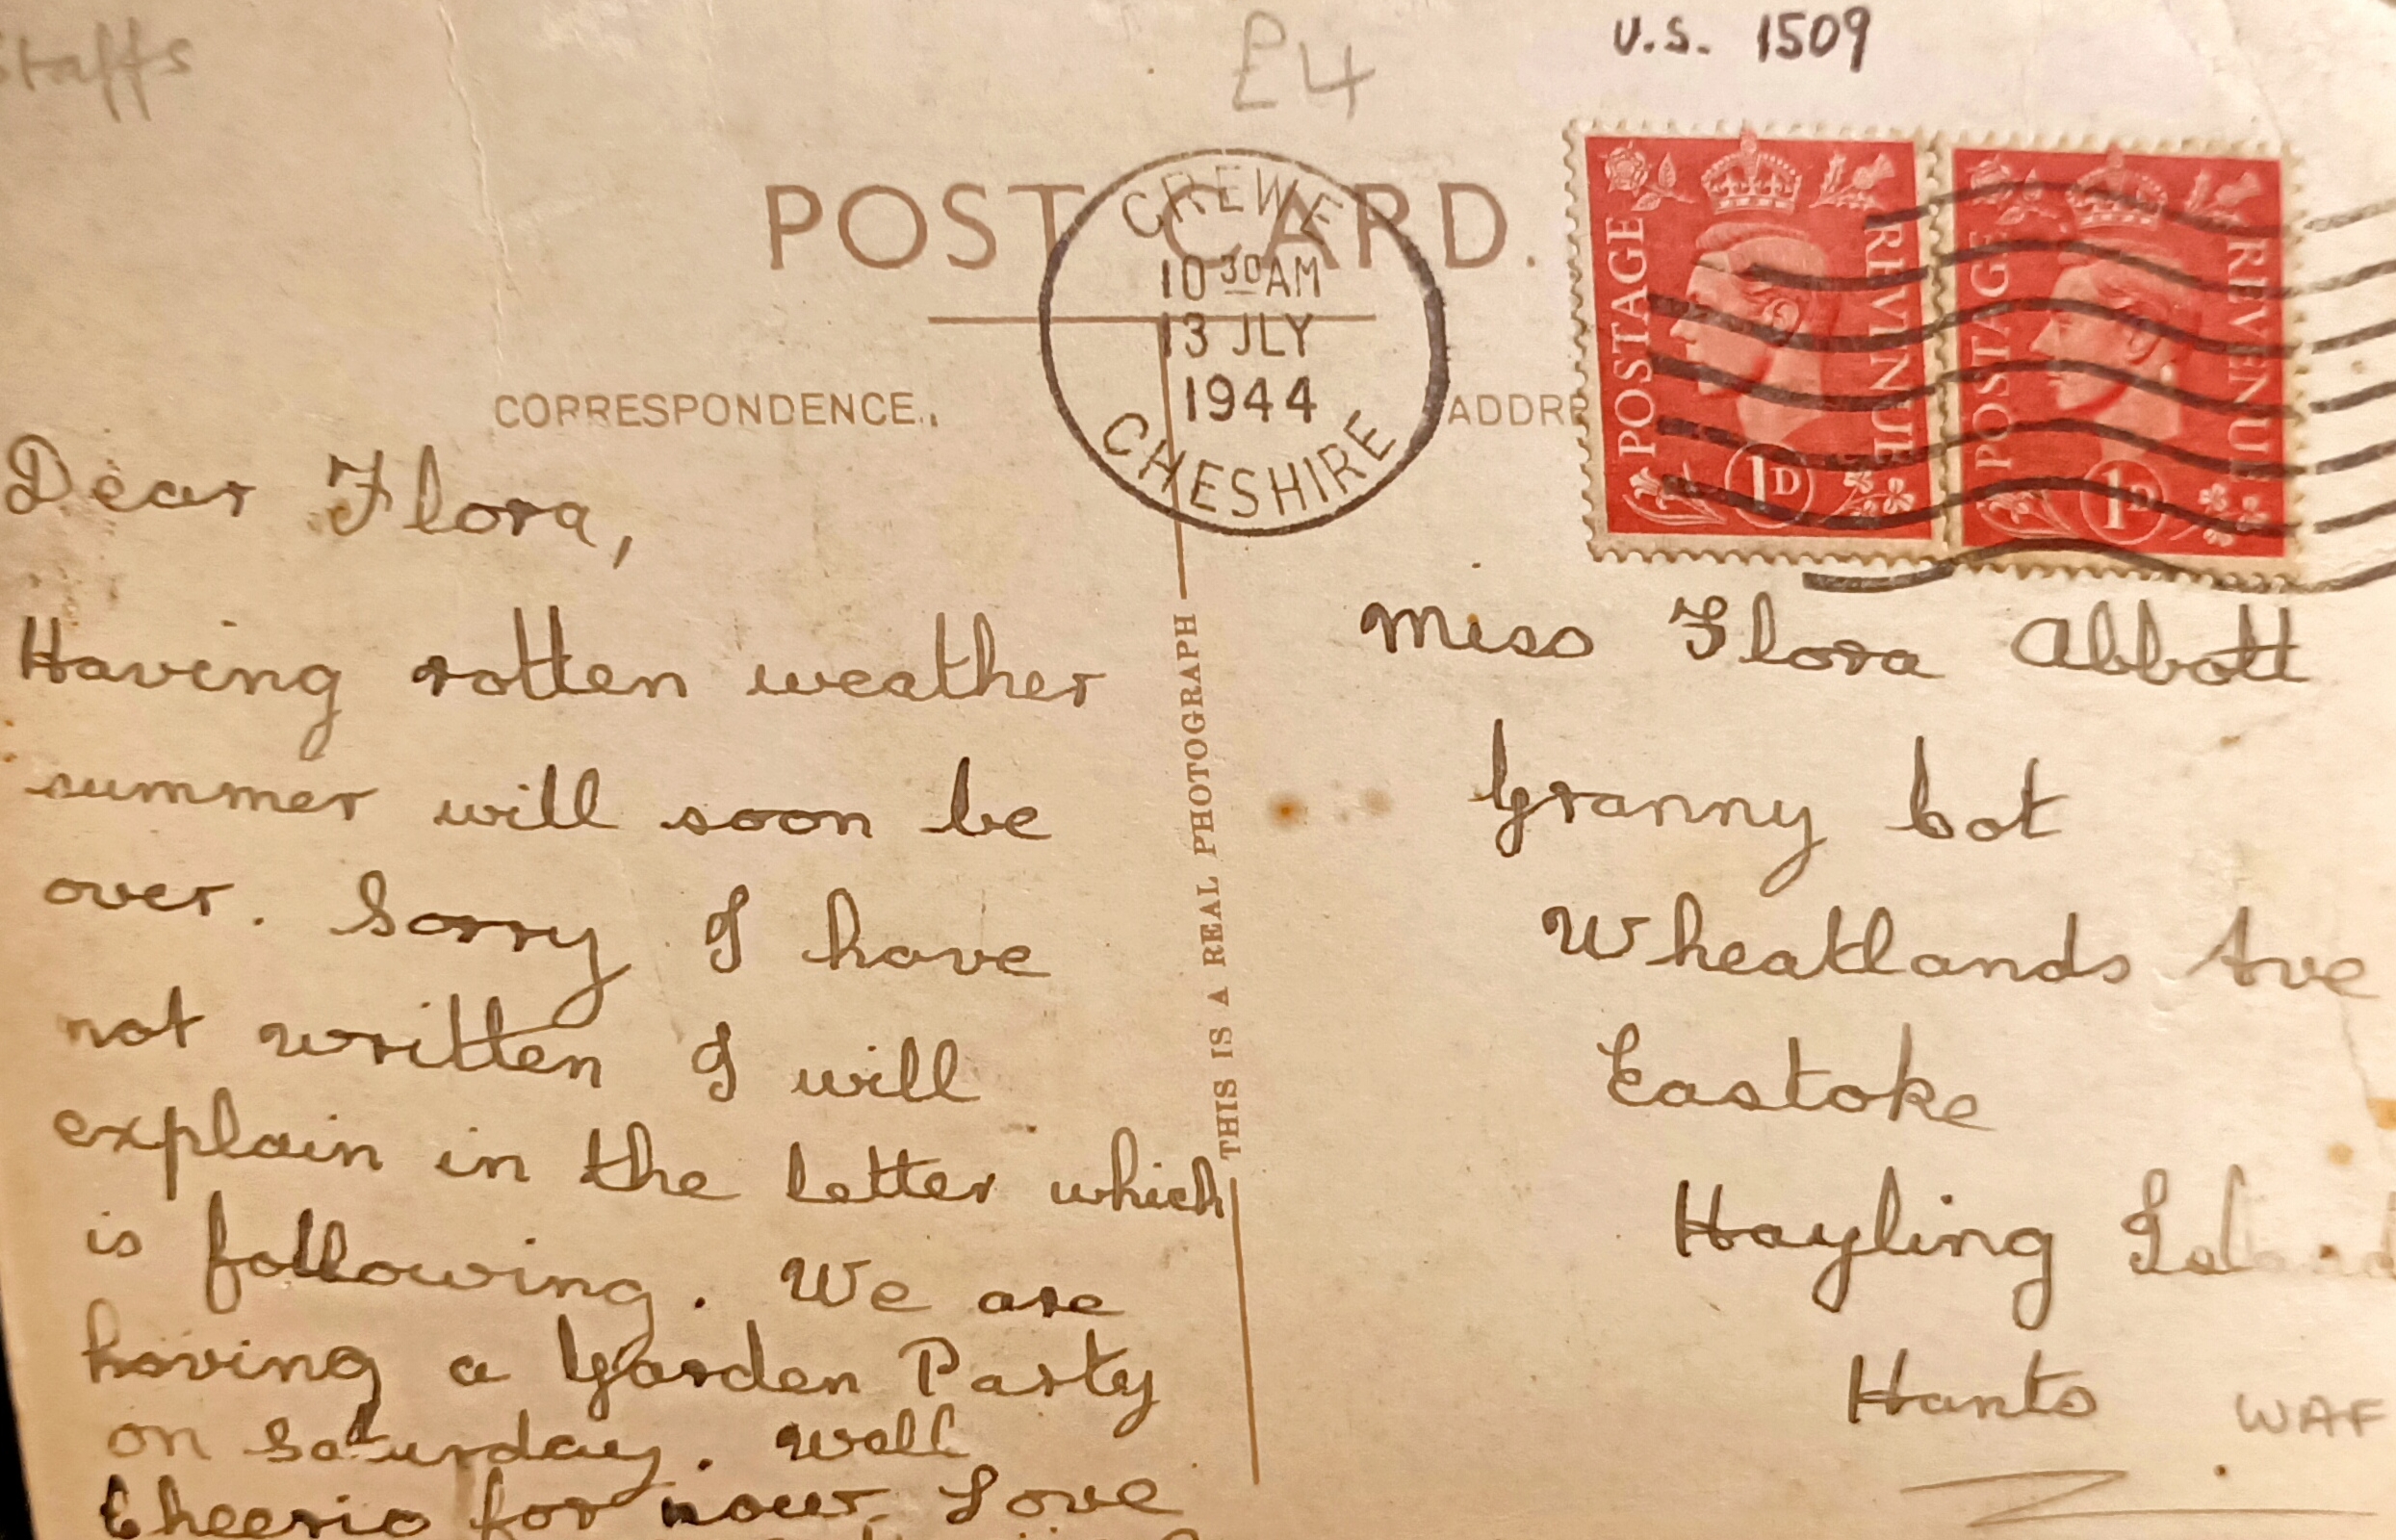 Staffs
£4
U.S. 1509
POST CARD.
CREWE
10 30 AM
13 JLY
1944
CHESHIRE
POSTAGE REVENUE
1D
POSTAGE REVENUE
1D
CORRESPONDENCE.
ADDRE
THIS IS A REAL PHOTOGRAPH
Dear Flora,
Having rotten weather
summer will soon be
over. Sorry I have
not written I will
explain in the letter which
is following. We are
having a Garden Party
on Saturday. Well
Cheerio for now. Love
Miss Flora Abbott
Granny Cot
Wheatlands Ave
Eastoke
Hayling Island
Hants
WAF